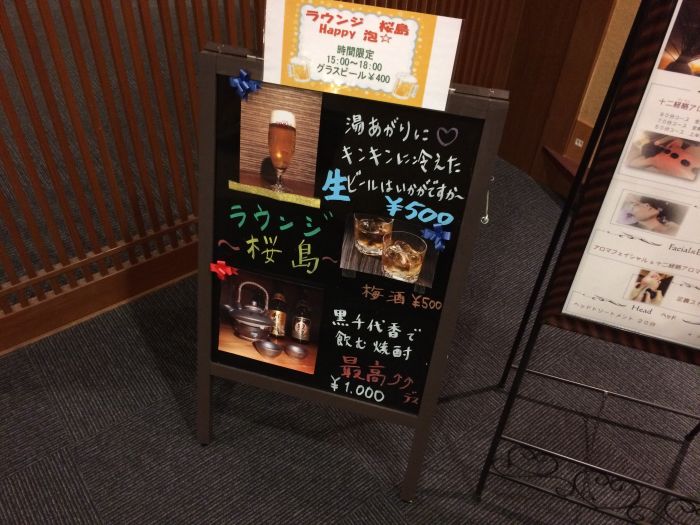 ラウンジ 桜島
Happy 泡☆
時間限定
15:00〜18:00
グラスビール¥400
湯あがりに♡
キンキンに冷えた
生ビールはいかがですか〜
¥500
ラウンジ
〜桜島〜
梅酒¥500
黒千代香で
飲む焼酎
最高⤴⤴デス
¥1.000
十二経絡アロ
アロマフェイシャル&十二経絡ア
Head
ヘッド
ヘッドトリートメント 20分